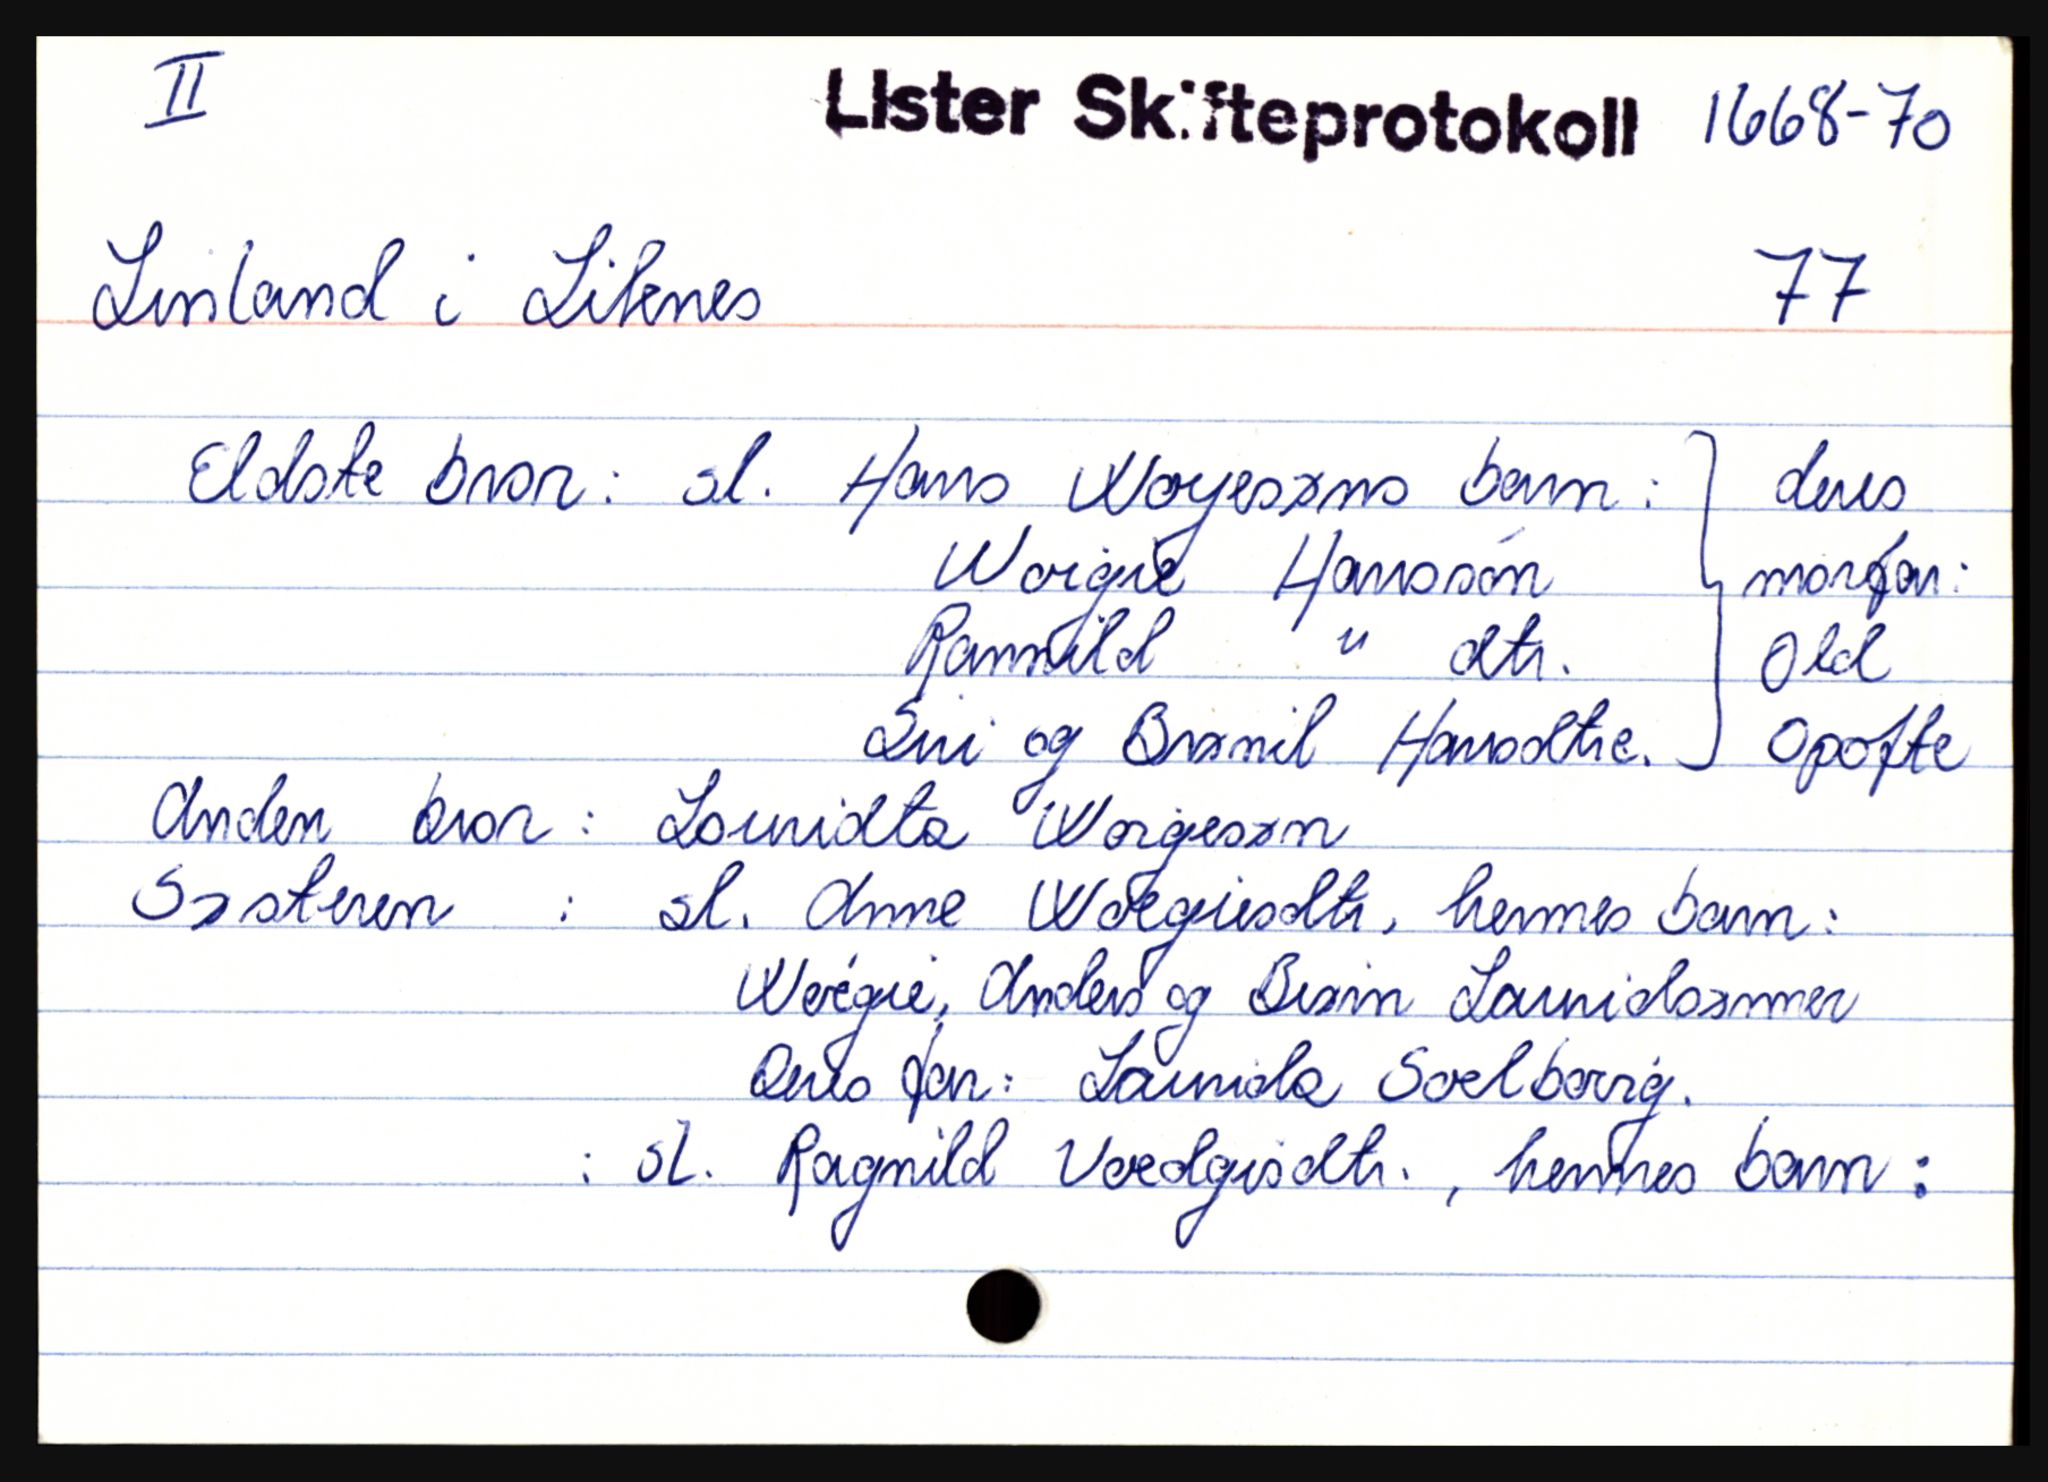 II Lister Skifteprotokoll 1668-70
Linland i Liknes 77
Eldste bror: sl. Hans Woyesøns barn: deres
Woigie Hanssøn morfar:
Rannild " dtr. Old
Siri og Brønil Hansdtre. Opofte
Anden bror: Lauridtz Worgesøn
Søsteren : sl. Anne Woegiesdtr, hennes barn:
Woegie, Anders og Biørn Lauridsønner
Deres far: Lauridz Soelbarrig.
: sl. Ragnild Voedgisdtr. , hennes barn: